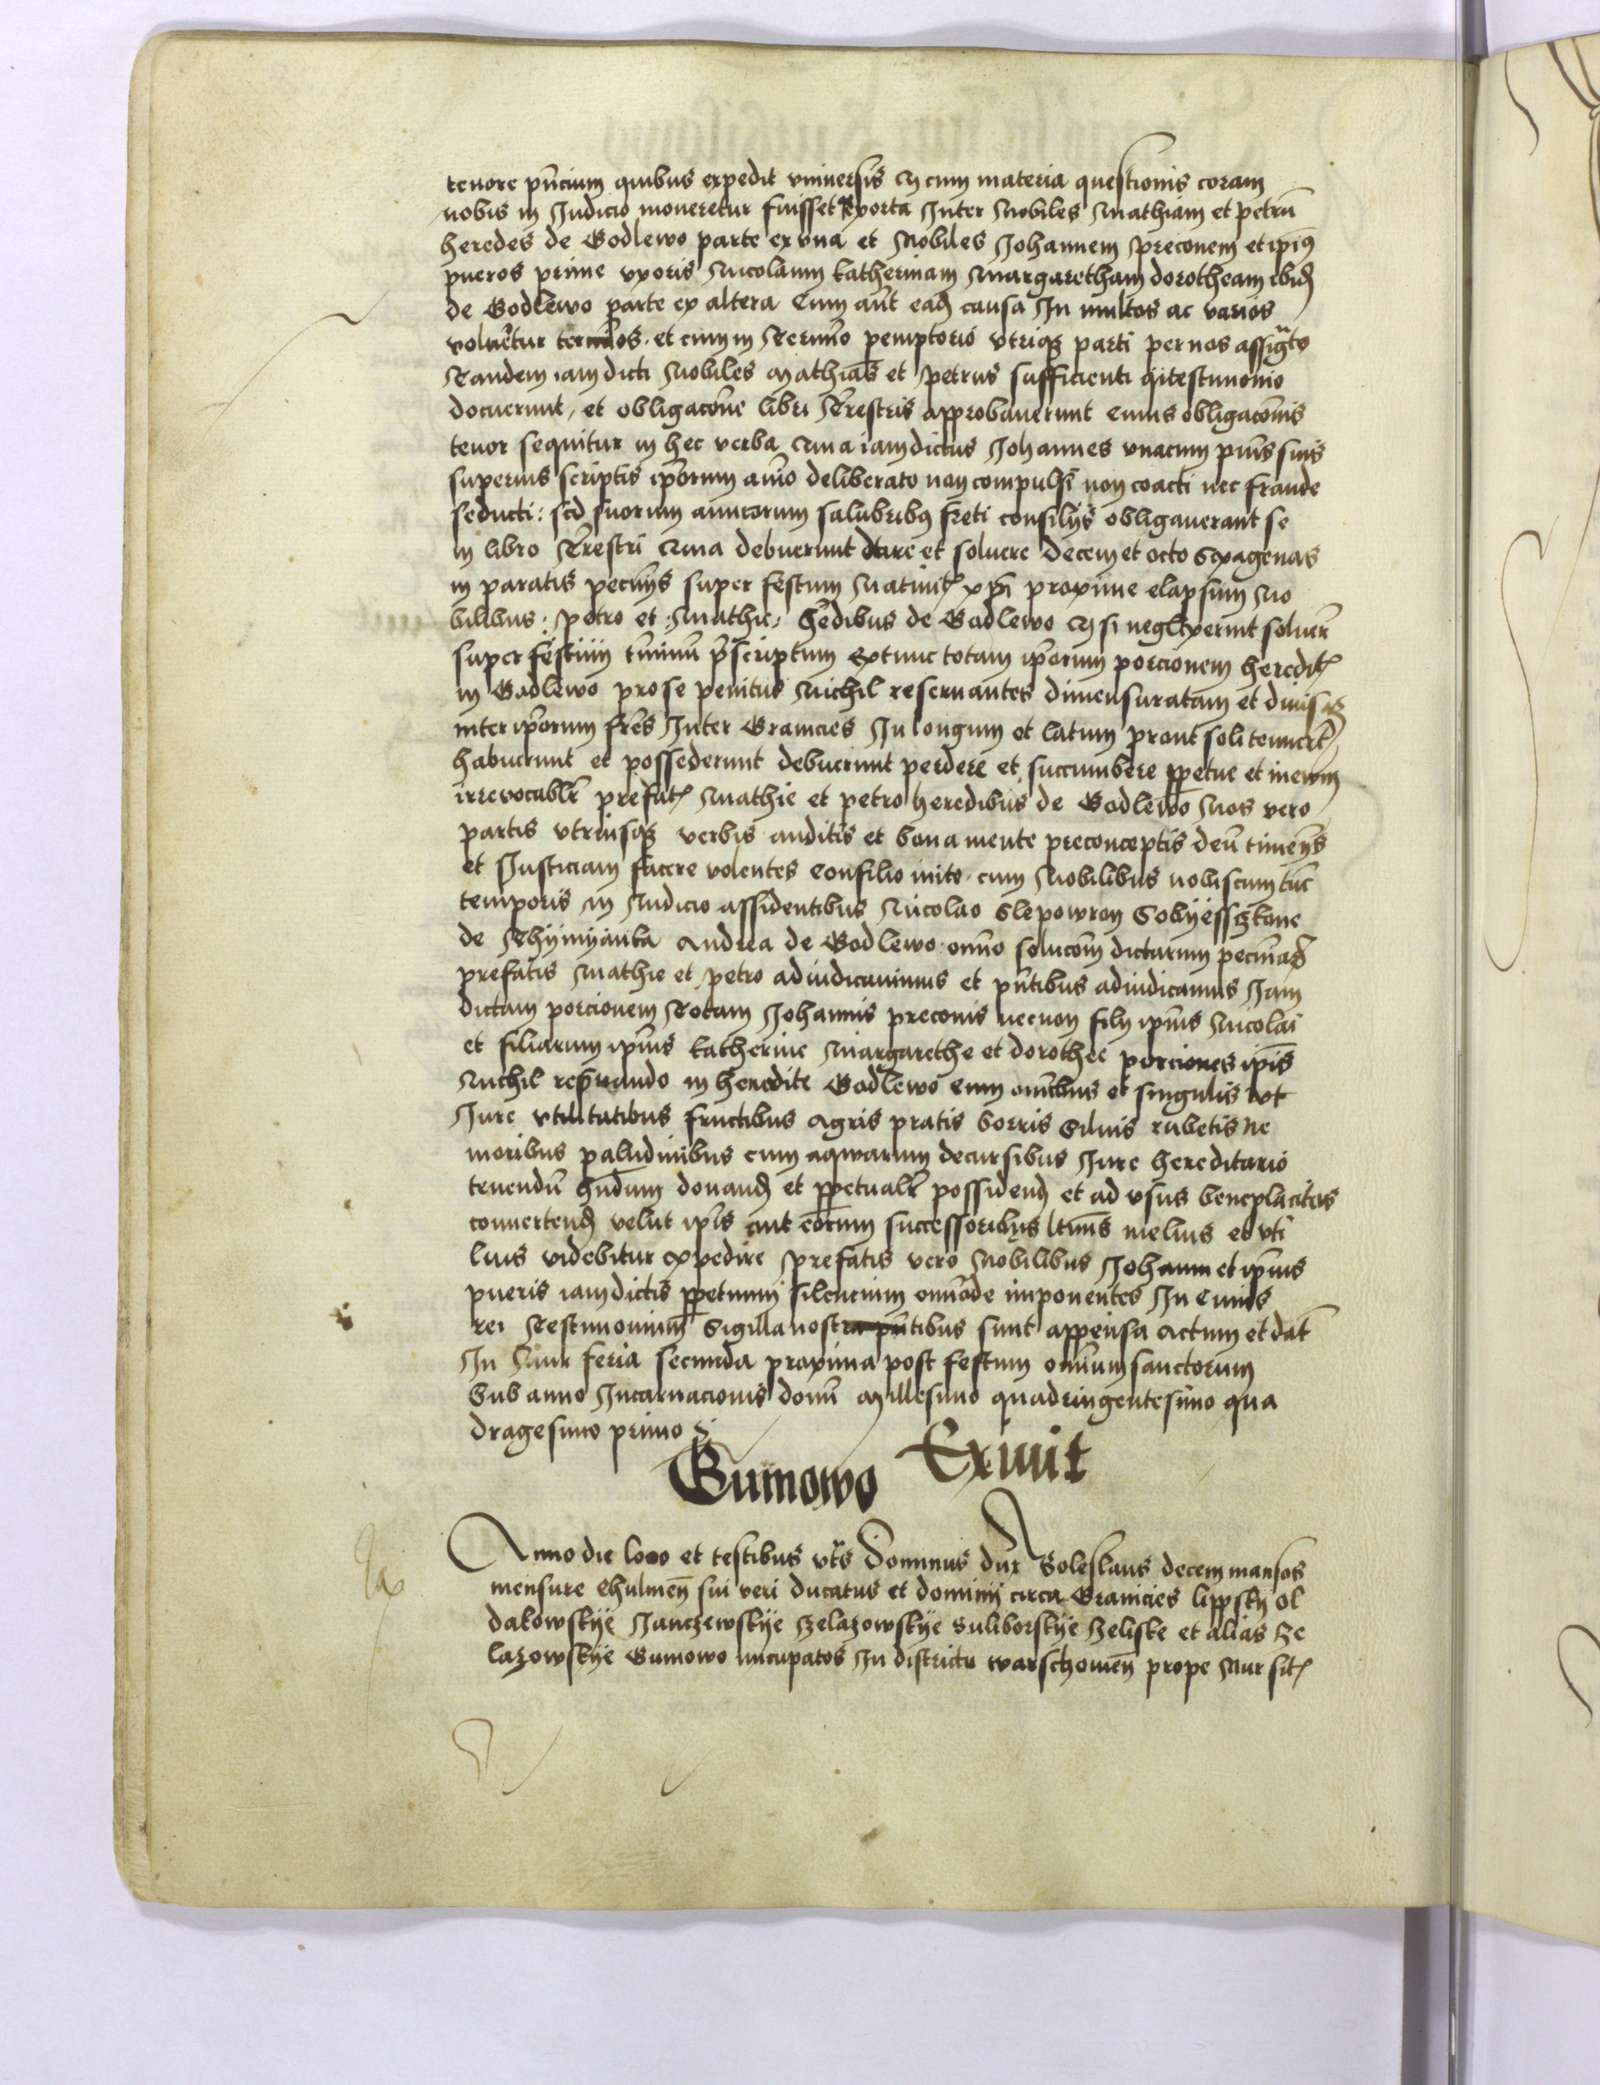 tenore pñcium quibus expedit vniuersis q cum materia questionis coram
nobis in Judicio moueretur fuisset exorta Inter Nobiles Mathiam et petrũ
heredes de Godlewo parte ex vna et Nobiles Johannem preconem et ipiꝰ
pueros prime vxoris Nicolaum katherinam Margaretham dorotheam ibid
de Godlewo parte ex altera Cum aũt ead causa In multos ac varios
voluẽtur termĩos et cum in Termĩo pemptorio vtriqꝫ parti per nos assigto
Tandem iam dicti Nobiles Mathias et petrus sufficienti testimonio
docuerunt et obligacõne libri Trestris approbauerunt cuius obligacõnis
tenor sequitur in hec verba qma iamdictus Johannes vnacum puĩs suis
superius scriptis ipõrum aĩmo deliberato non compulsi non coacti nec fraude
seducti : sed suorum amicorum salubribꝰ freti consilijs obligauerant se
in libro Trestri qma debuerunt dare et soluere decem et octo sexagenas
in paratis pecunijs super festum Natiuit xpi proxime elapsum No
bilibus : petro et Mathie hedibus de Godlewo q si neglexerint soluer
super festum tm̃inũ pscriptum Extunc totam ipõrum porcionem heredit
in Godlewo pro se penitus Nichil reseruantes dimensuratam et diuisaꝫ
inter ipõrum fres Inter Granicies In longum et latum prout soli tenuert
habuerunt et possederunt debuerunt perdere et succumbere ppetue et ineuum
irreuocablr prefat Mathie et petro heredibus de Godlewo Nos vero
partis vtriusqꝫ verbis auditis et bona mente preconceptis deũ timeñs
et Justiciam facere volentes Consilio inito cum Nobilibus nobiscum tũc
temporis in Judicio assidentibus Nicolao Slepowron
de Andrea de Godlewo omĩo solucõm dictarum pecuniaꝝ
prefatis Mathie et petro adiudicauimus et pñtibus adiudicamus Jam
dictam porcionem Totam Johannis preconis necnon filij ipĩus Nicolai
et filiarum ipĩus katherine Margarethe et dorothee porciones ipĩs
Nichil resuando in heredite Godlewo cum omĩbus et singulis vt
Jure vtilitatibus fructibus Agris pratis borris siluis rubetis ne
moribus paludinibus cum aqwarum decursibus Jure hereditario
tenendũ hñdum donand et ppetualr possidend et ad vsus beneplacitos
conuertend velut ipĩs aut eorum successoribꝰ ltmĩs melius et vti
lius videbitur expedire prefatis vero Nobilibus Johanni et ipĩus
pueris iamdictis ppetuum silencium omĩode imponentes In Cuius
rei Testimonium Sigilla nostra pñtibus sunt appensa Actum et dat
In Nur feria secunda proxima post festum omĩum sanctorum
Sub anno Incarnacionis domĩ Millesimo quadringentesimo qua
dragesimo primo
Gumowo Exiuit
Anno die loco et testibus vts Dominus dux Boleslaus decem mansos
mensure Chulmeñ sui veri ducatus et dominij circa Granicies lippsky Ol
dakowskije Janczewskije Zelazowskije Suliborskije Zeliske et alias Ze
lazowskije Gumowo nucupatos In districtu warschouieñ prope Nur sit